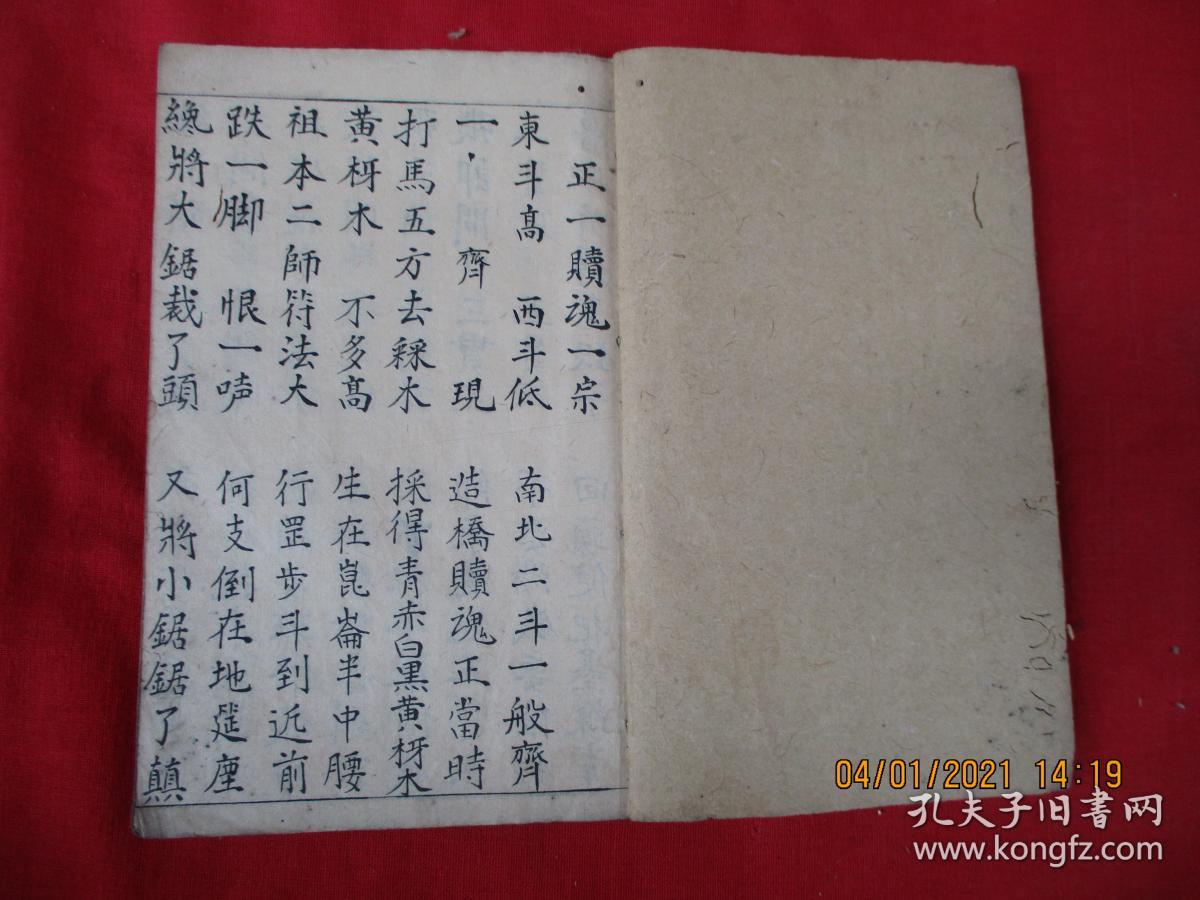 正一贖魂一宗
東斗髙 西斗低 南北二斗一般齊
一 齊 現 造橋贖魂正當時
打馬五方去綵木 採得青赤白黑黃枒木
黃枒木 不多髙 生在崑崙半中腰
祖本二師符法大 行罡步斗到近前
跌一脚 恨一呠 何支倒在地埃塵
纔將大鋸裁了頭 又將小鋸鋸了顛
04/01/2021 14:19
孔夫子旧书网
www.kongfz.com